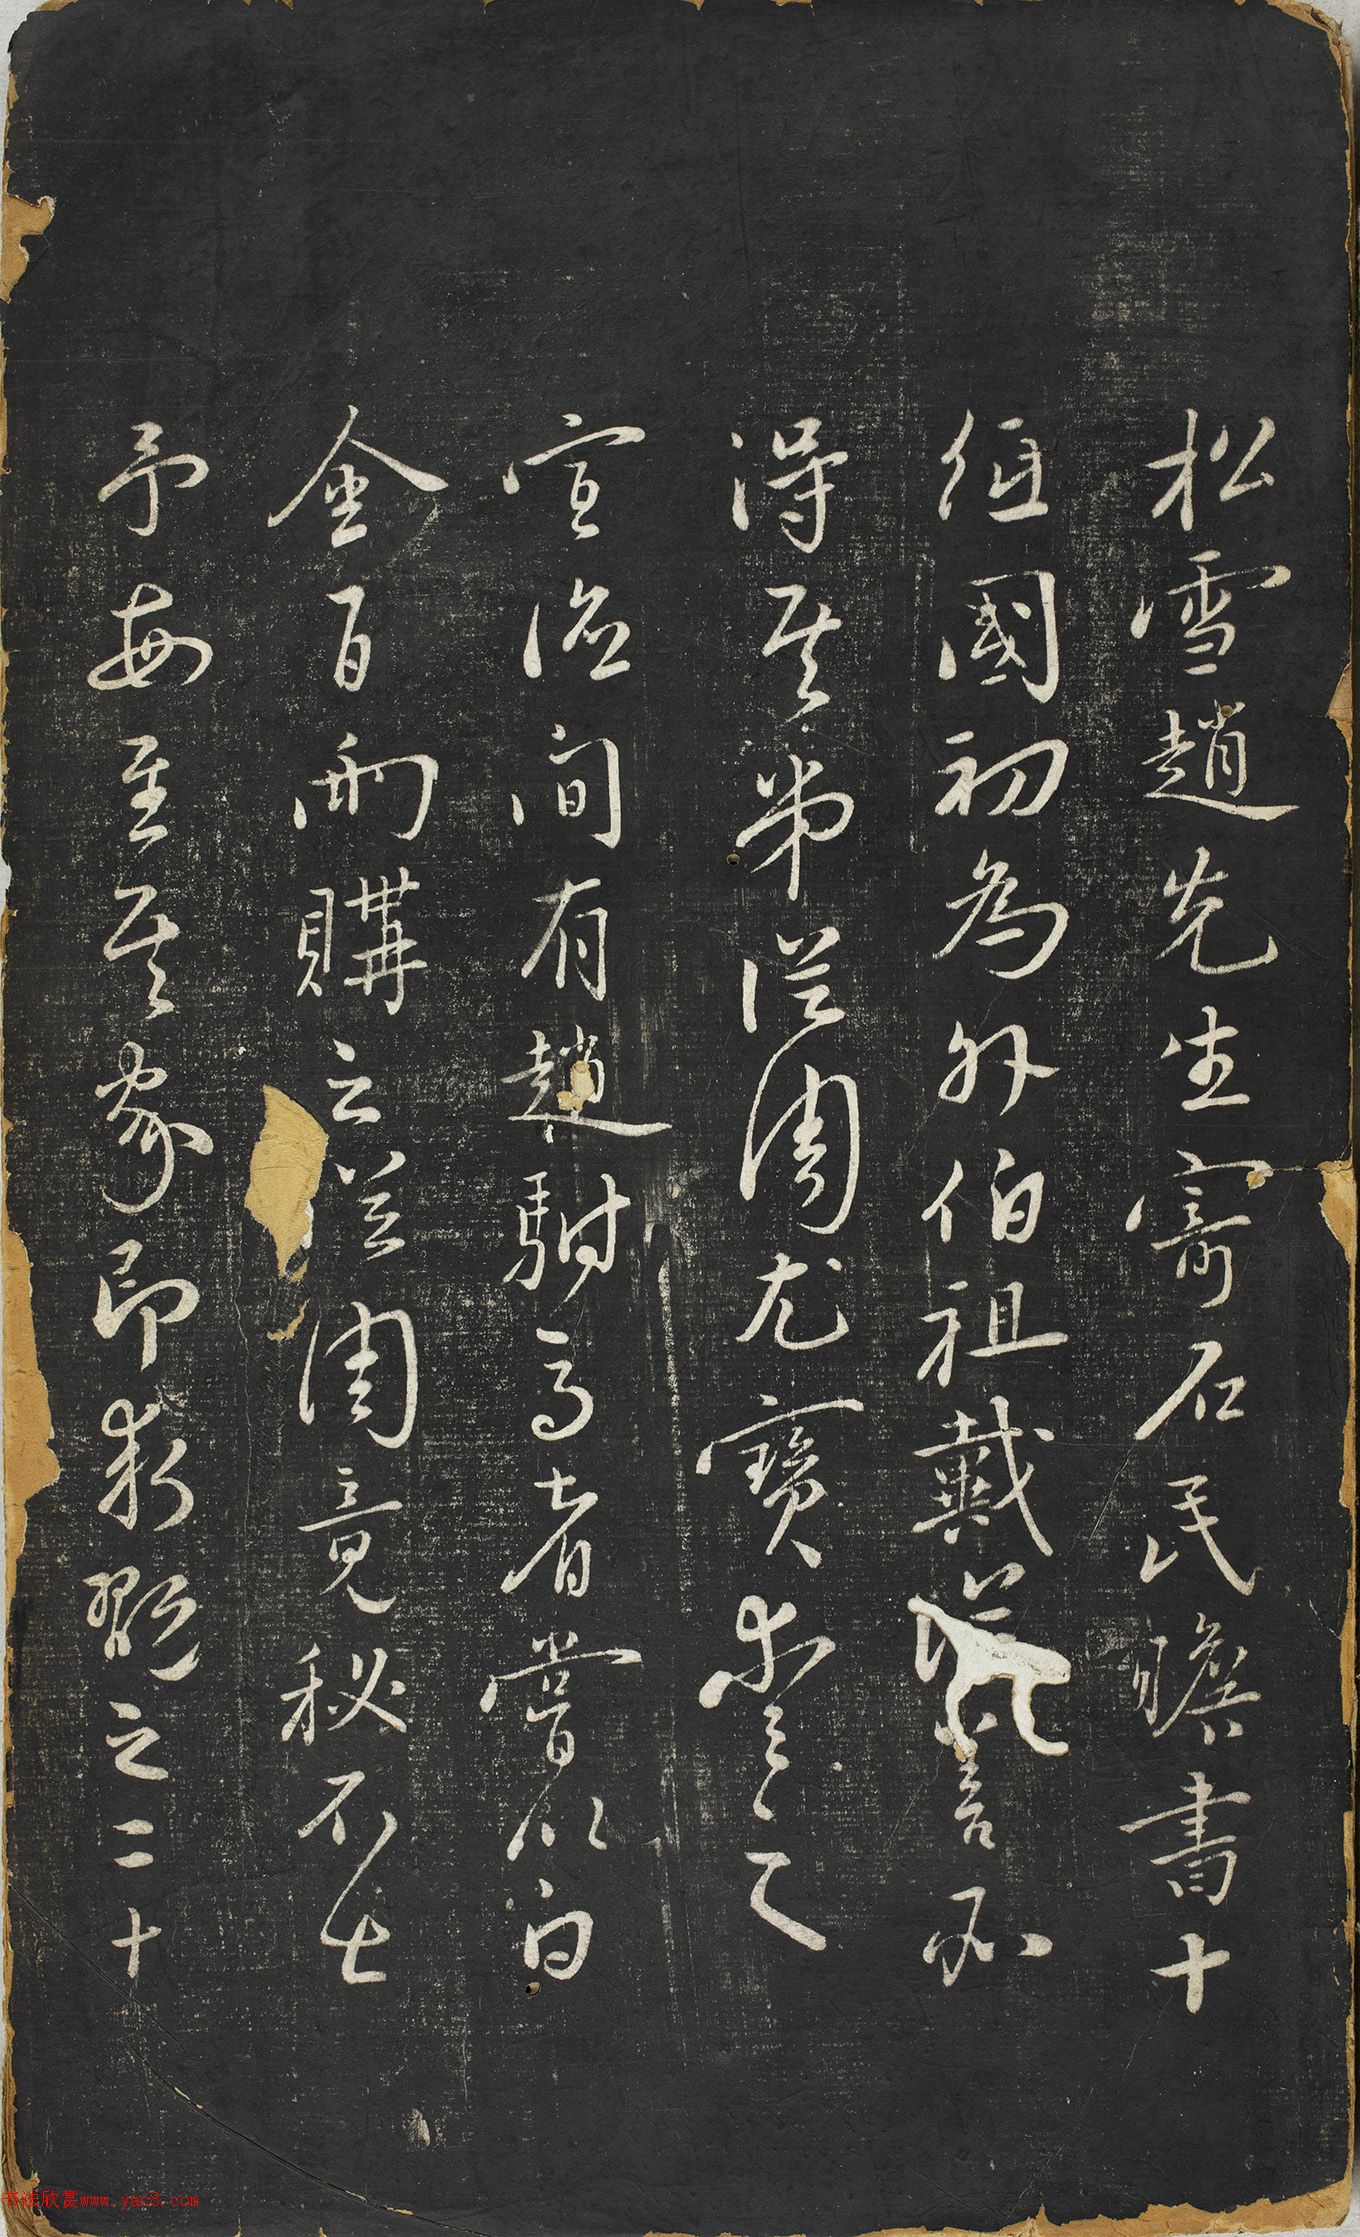 松雪趙先生寄石民瞻書十
紙國初為外伯祖戴從善所
得其弟從周尤寶愛之
宣德間有趙駙馬者嘗以白
金百兩購之從周竟秘不出
予每至其家即求觀之二十
书法欣赏www.yac8.com